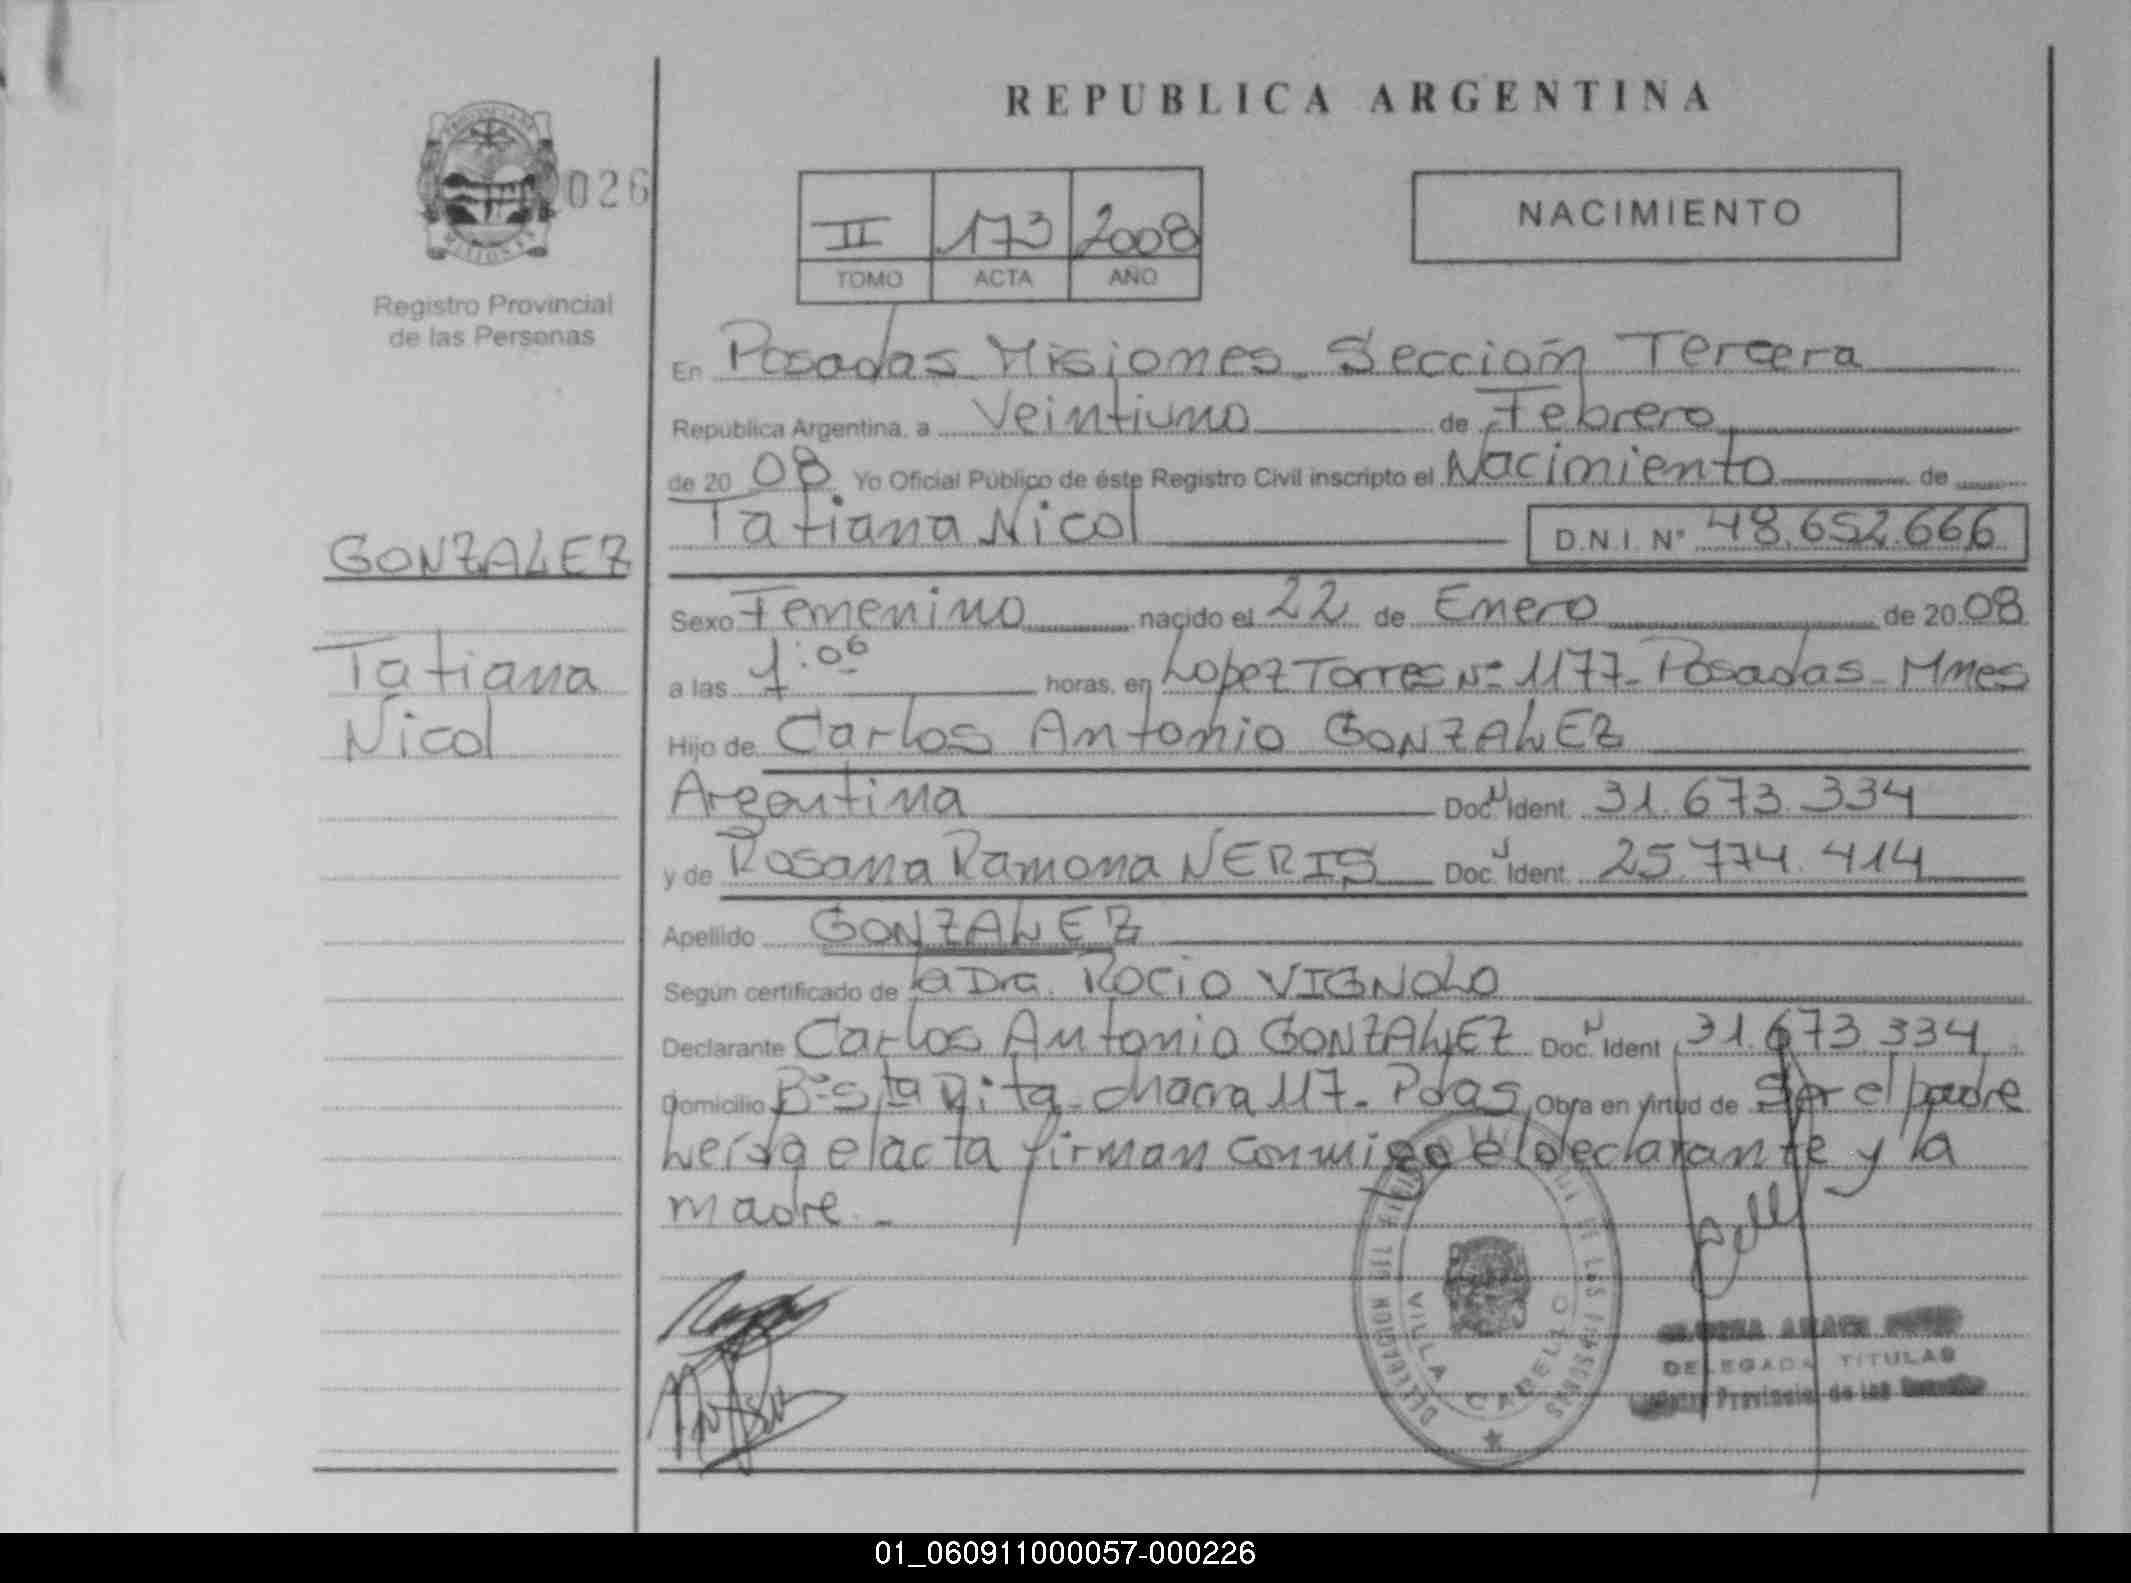 REPUBLICA ARGENTINA
026
II 173 2008
TOMO ACTA AÑO
NACIMIENTO
Registro Provincial
de las Personas
En Posadas Misiones Sección Tercera
Republica Argentina, a Veintiuno de Febrero
de 20 08 Yo Oficial Público de éste Registro Civil inscripto el Nacimiento de
Tatiana Nicol D.N.I. N° 48.652.666
GONZALEZ
Tatiana
Nicol
Sexo Femenino nacido el 22 de Enero de 20 08
a las 1:06 horas, en Lopez Torres N° 1177 - Posadas - Mnes
Hijo de Carlos Antonio GONZALEZ
Argentina Doc N Ident. 31.673.334
y de Rosana Ramona NERIS Doc Ident. 25.774.414
Apellido GONZALEZ
Según certificado de la Dra. Rocio VIGNOLO
Declarante Carlos Antonio GONZALEZ Doc. N Ident 31.673.334
Domicilio B° Sta Rita - chacra 117 - Pdas Obra en virtud de Ser el padre
Leída el acta firman conmigo el declarante y la
madre. -
VILLA CABELLO
DELEGADA TITULAR
Provincial de las
01_060911000057-000226